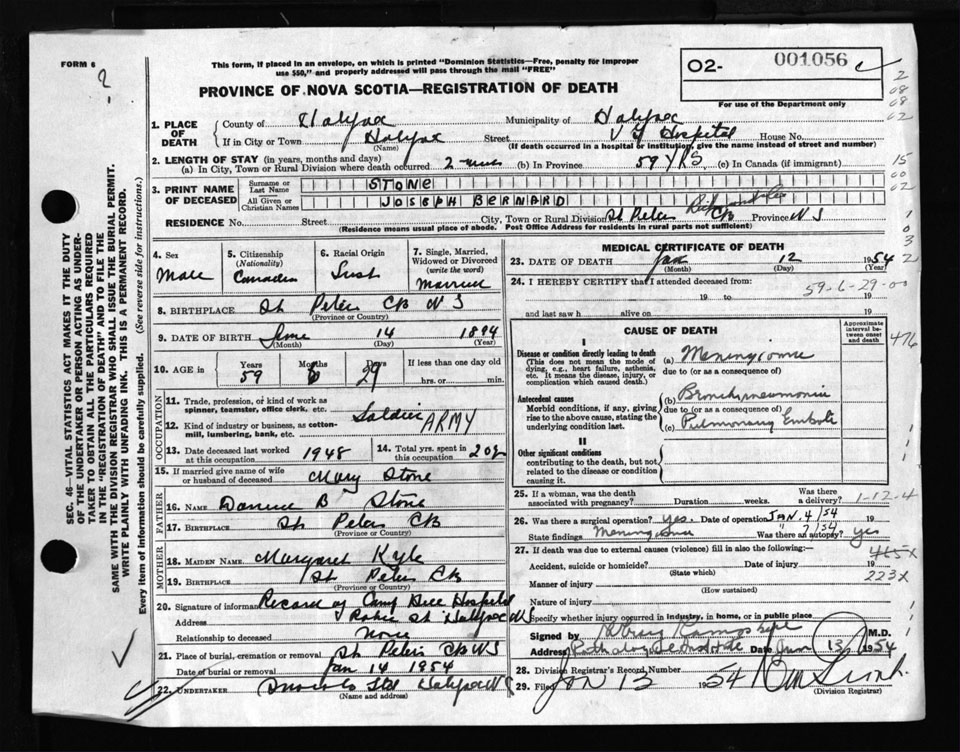 FORM 6
?
This form, if placed in an envelope, on which is printed "Dominion Statistics—Free, penalty for improper
use $50," and properly addressed will pass through the mail "FREE"
PROVINCE OF NOVA SCOTIA—REGISTRATION OF DEATH
O2- 001056 c
For use of the Department only
2
08
08
02
1. PLACE OF DEATH
County of Halifax Municipality of Halifax
If in City or Town Halifax Street V G Hospital House No.
(Name) (If death occurred in a hospital or institution, give the name instead of street and number)
2. LENGTH OF STAY (in years, months and days)
(a) In City, Town or Rural Division where death occurred 2 (b) In Province 59 YRS (c) In Canada (if immigrant)
15
00
02
3. PRINT NAME OF DECEASED
Surname or Last Name STONE
All Given or Christian Names JOSEPH BERNARD
RESIDENCE No. Street City, Town or Rural Division St Peters CB Province NS
(Residence means usual place of abode. Post Office Address for residents in rural parts not sufficient)
1
0
3
2
4. Sex Male
5. Citizenship (Nationality) Canadian
6. Racial Origin
7. Single, Married, Widowed or Divorced (write the word) Married
8. BIRTHPLACE St Peters CB NS
(Province or Country)
9. DATE OF BIRTH June 14 1894
(Month) (Day) (Year)
10. AGE in Years Months Days If less than one day
59 6 29 hrs. or min.
OCCUPATION
11. Trade, profession, or kind of work as
spinner, teamster, office clerk, etc. Soldier
12. Kind of industry or business, as cotton-
mill, lumbering, bank, etc. ARMY
13. Date deceased last worked at this occupation 1948
14. Total yrs. spent in this occupation 20
15. If married give name of wife
or husband of deceased Mary Stone
FATHER
16. NAME B Stone
17. BIRTHPLACE St Peters CB
(Province or Country)
MOTHER
18. MAIDEN NAME Margaret Kyle
19. BIRTHPLACE St Peters CB
(Province or Country)
20. Signature of informant Record of Camp Hill Hospital
Address Robie St Halifax NS
Relationship to deceased None
21. Place of burial, cremation or removal St Peters CB NS
Date of burial or removal Jan 14 1954
22. UNDERTAKER Ltd Halifax NS
(Name and address)
MEDICAL CERTIFICATE OF DEATH
23. DATE OF DEATH Jan 12 1954
(Month) (Day) (Year)
24. I HEREBY CERTIFY that I attended deceased from:
59-6-29-00
19 to 19
and last saw h alive on 19
CAUSE OF DEATH
Approximate interval between onset and death
476
I
Disease or condition directly leading to death
(This does not mean the mode of
dying, e.g., heart failure, asthenia,
etc. It means the disease, injury, or
complication which caused death.)
(a) Meningioma
due to (or as a consequence of)
Antecedent causes
Morbid conditions, if any, giving
rise to the above cause, stating the
underlying condition last.
(b) Bronchopneumonia
due to (or as a consequence of)
(c) Pulmonary Emboli
II
Other significant conditions
contributing to the death, but not
related to the disease or condition
causing it.
25. If a woman, was the death
associated with pregnancy? Duration weeks. Was there
a delivery? 1-12-4
26. Was there a surgical operation? yes. Date of operation JAN. 4/54 19
" 7/54
State findings Meningioma Was there an autopsy? yes
27. If death was due to external causes (violence) fill in also the following:— 465x
Accident, suicide or homicide? Date of injury 19
(State which) 223X
Manner of injury
(How sustained)
Nature of injury
Specify whether injury occurred in industry, in home, or in public place
Signed by M.D.
Address Pathological Institute Date Jan 13 1954
28. Division Registrar's Record Number
29. Filed Jan 13 1954
(Division Registrar)
SEC. 46—VITAL STATISTICS ACT MAKES IT THE DUTY
OF THE UNDERTAKER OR PERSON ACTING AS UNDER-
TAKER TO OBTAIN ALL THE PARTICULARS REQUIRED
IN THE "REGISTRATION OF DEATH" AND TO FILE THE
SAME WITH THE DIVISION REGISTRAR WHO SHALL ISSUE THE BURIAL PERMIT.
WRITE PLAINLY WITH UNFADING INK. THIS IS A PERMANENT RECORD.
Every item of information should be carefully supplied. (See reverse side for instructions.)